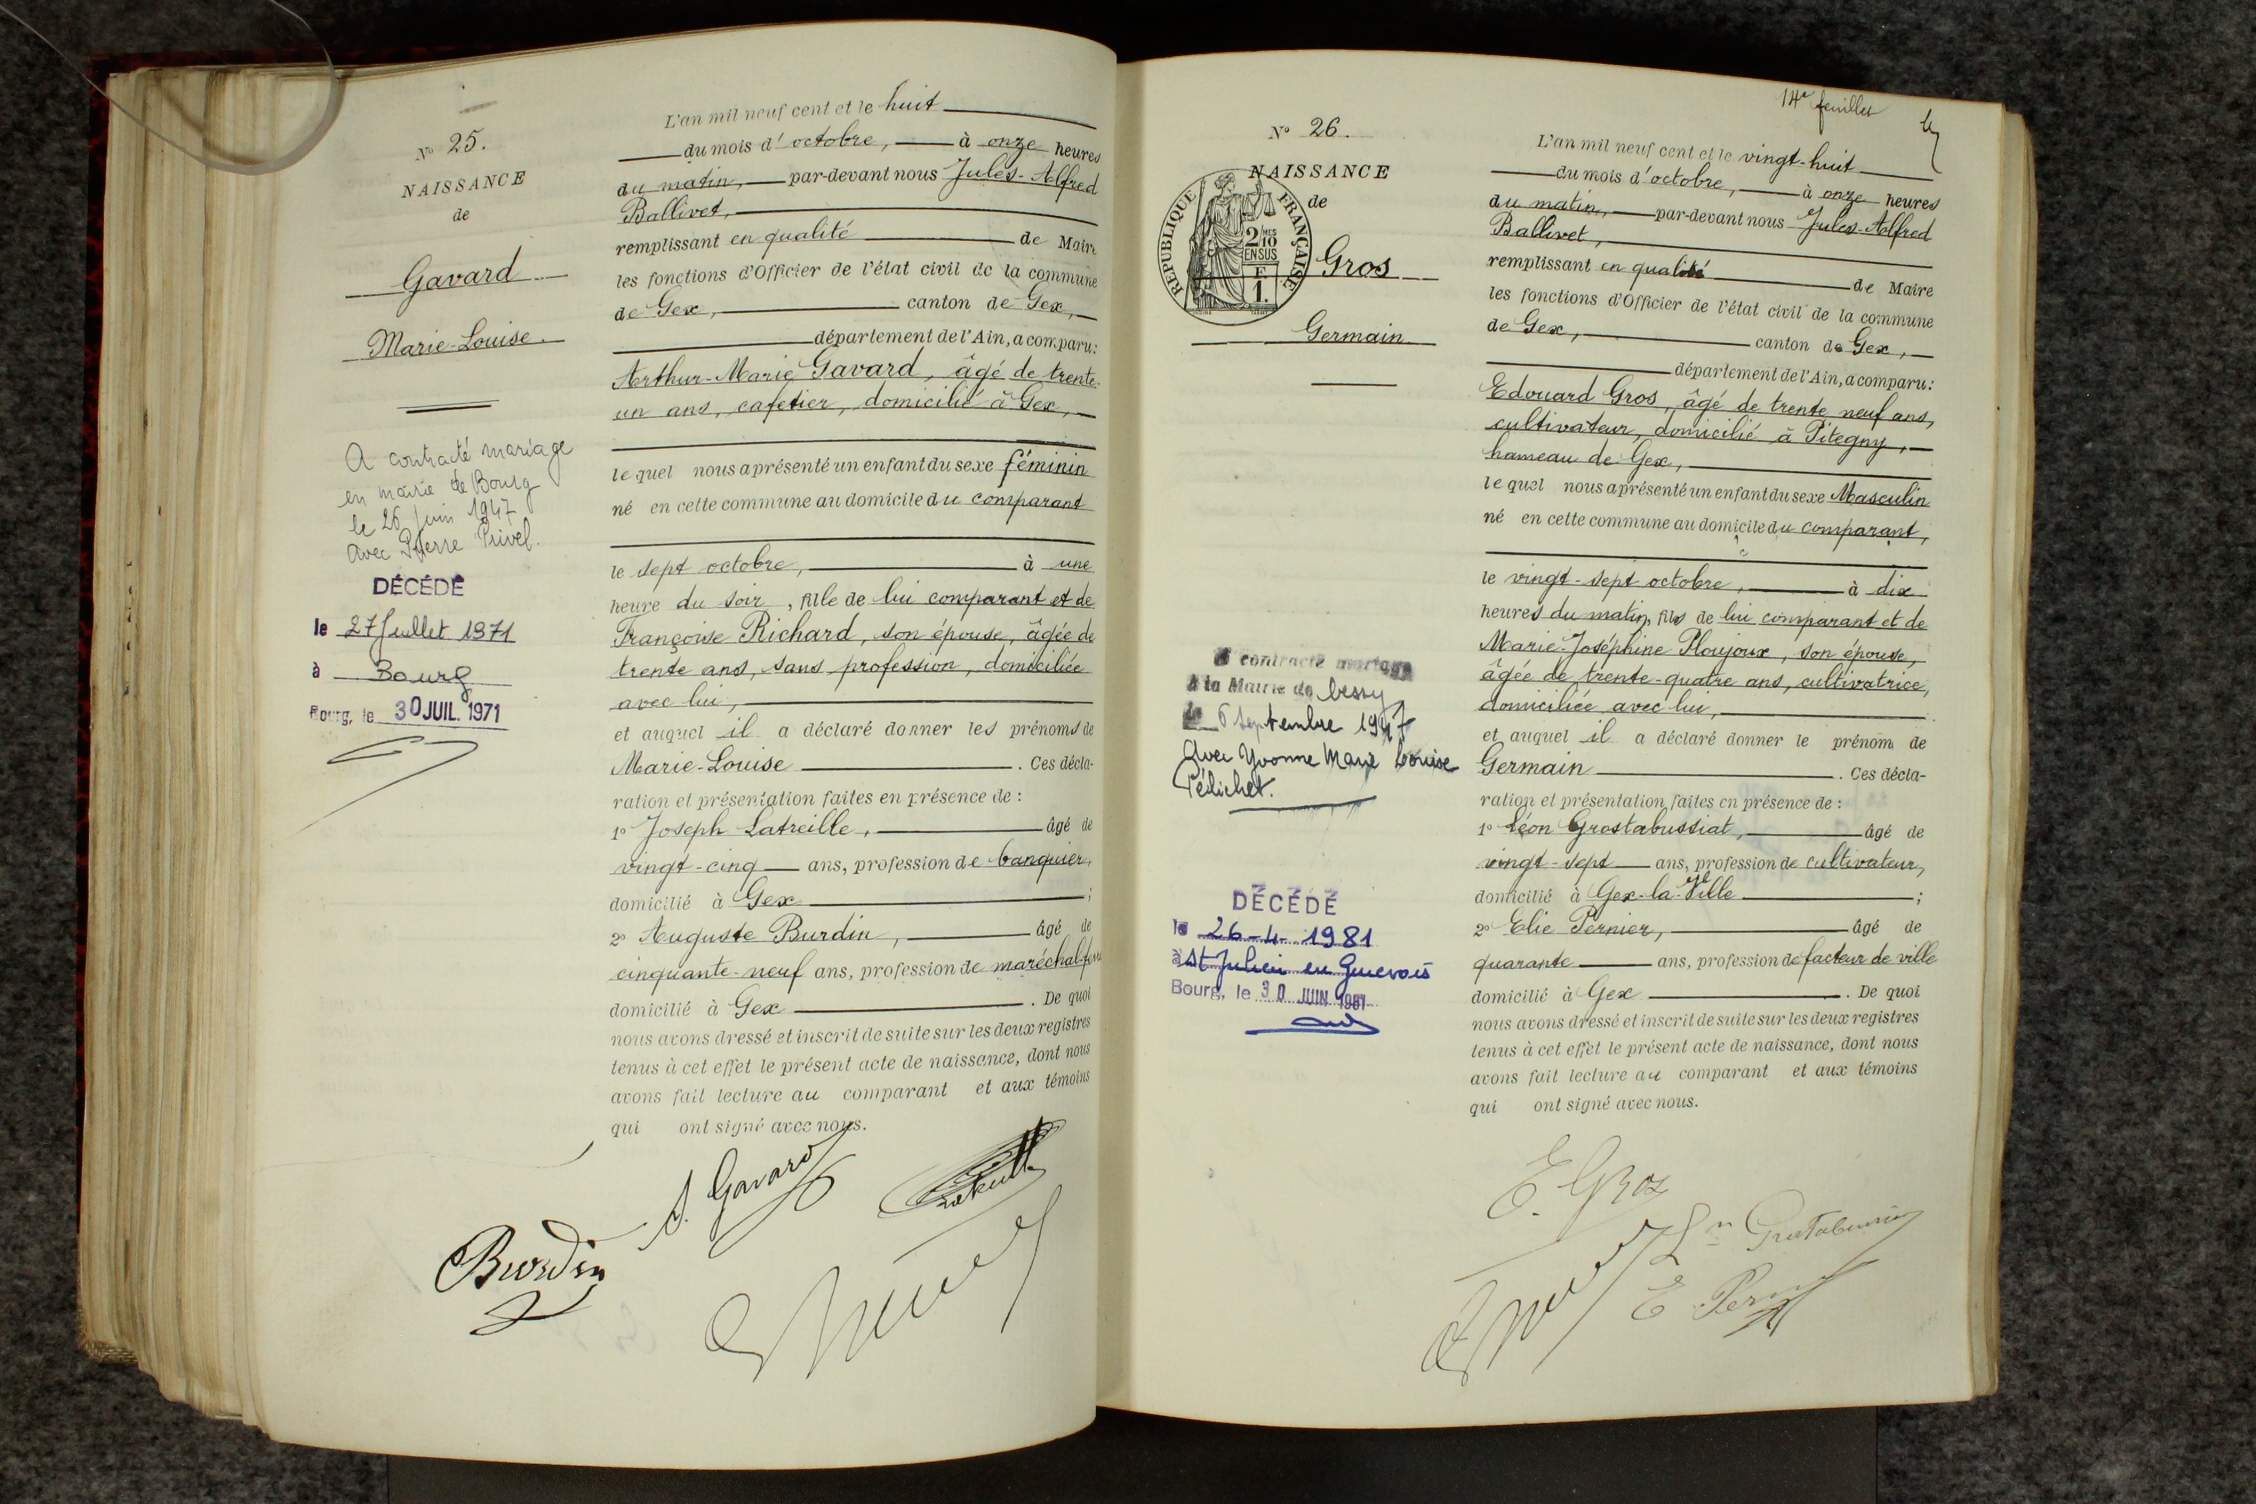 N° 25.
NAISSANCE
de
Gavard
Marie-Louise.
A contracté mariage
en mairie de Bourg
le 26 juin 1947
avec Pierre Privel.
DÉCÉDÉ
le 27 Juillet 1971
à Bourg
Bourg, le 30 JUIL. 1971
L'an mil neuf cent et le huit
du mois d'octobre, à onze heures
du matin, par-devant nous Jules-Alfred
Ballivet,
remplissant en qualité de Maire
les fonctions d'Officier de l'état civil de la commune
de Gex, canton de Gex,
département de l'Ain, a comparu:
Arthur-Marie Gavard, âgé de trente-
un ans, cafetier, domicilié à Gex,
le quel nous a présenté un enfant du sexe féminin
né en cette commune au domicile du comparant
le sept octobre, à une
heure du soir, fille de lui comparant et de
Françoise Richard, son épouse, âgée de
trente ans, sans profession, domiciliée
avec lui,
et auquel il a déclaré donner les prénoms de
Marie-Louise. Ces décla-
ration et présentation faites en présence de :
1° Joseph Latreille, âgé de
vingt-cinq ans, profession de banquier,
domicilié à Gex ;
2° Auguste Burdin, âgé de
cinquante-neuf ans, profession de maréchal-
domicilié à Gex. De quoi
nous avons dressé et inscrit de suite sur les deux registres
tenus à cet effet le présent acte de naissance, dont nous
avons fait lecture au comparant et aux témoins
qui ont signé avec nous.
A. Gavard
Burdin
14e feuillet
N° 26.
NAISSANCE
de
RÉPUBLIQUE FRANÇAISE
2/10 MES
EN SUS
F.
1.
Gros
Germain
A contracté mariage
à la Mairie de Cessy
le 6 septembre 1947
avec Yvonne Marie Louise
Pélichet.
DÉCÉDÉ
le 26-4-1981
à St Julien en Genevois
Bourg, le 30 JUIN 1981
L'an mil neuf cent et le vingt-huit
du mois d'octobre, à onze heures
du matin, par-devant nous Jules-Alfred
Ballivet,
remplissant en qualité de Maire
les fonctions d'Officier de l'état civil de la commune
de Gex, canton de Gex,
département de l'Ain, a comparu:
Edouard Gros, âgé de trente neuf ans,
cultivateur, domicilié à Pitegny,
hameau de Gex,
le quel nous a présenté un enfant du sexe Masculin
né en cette commune au domicile du comparant,
le vingt-sept octobre, à dix
heures du matin, fils de lui comparant et de
Marie-Joséphine Ploujoux, son épouse,
âgée de trente-quatre ans, cultivatrice,
domiciliée avec lui,
et auquel il a déclaré donner le prénom de
Germain. Ces décla-
ration et présentation faites en présence de :
1° Léon Grostabussiat, âgé de
vingt-sept ans, profession de cultivateur,
domicilié à Gex-la-Ville ;
2° Elie Pernier, âgé de
quarante ans, profession de facteur de ville
domicilié à Gex. De quoi
nous avons dressé et inscrit de suite sur les deux registres
tenus à cet effet le présent acte de naissance, dont nous
avons fait lecture au comparant et aux témoins
qui ont signé avec nous.
E. Gros